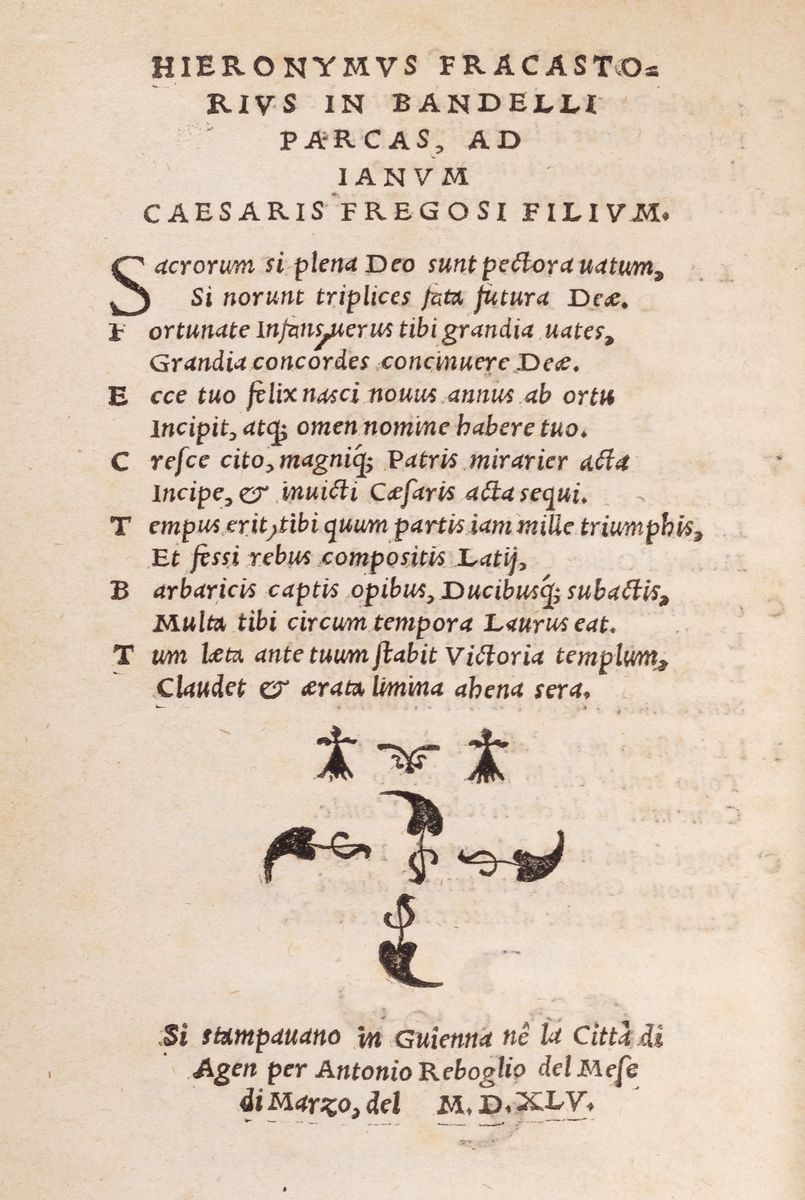 HIERONYMVS FRACASTO=
RIVS IN BANDELLI
PARCAS, AD
IANVM
CAESARIS FREGOSI FILIVM.
Sacrorum si plena Deo sunt pectora uatum,
Si norunt triplices fata futura Deæ.
Fortunate Infans, uerus tibi grandia uates,
Grandia concordes concinuere Deæ.
Ecce tuo felix nasci nouus annus ab ortu
Incipit, atq; omen nomine habere tuo.
Creſce cito, magniq́; Patris mirarier acta
Incipe, & inuicti Cæſaris acta sequi.
Tempus erit, tibi quum partis iam mille triumphis,
Et fessi rebus compositis Latij,
Barbaricis captis opibus, Ducibusq́; subactis,
Multa tibi circum tempora Laurus eat.
Tum læta ante tuum ſtabit Victoria templum,
Claudet & ærata limina ahena sera.
Si stampauano in Guienna nê la Città di
Agen per Antonio Reboglio del Meſe
di Marzo, del M. D. XLV.